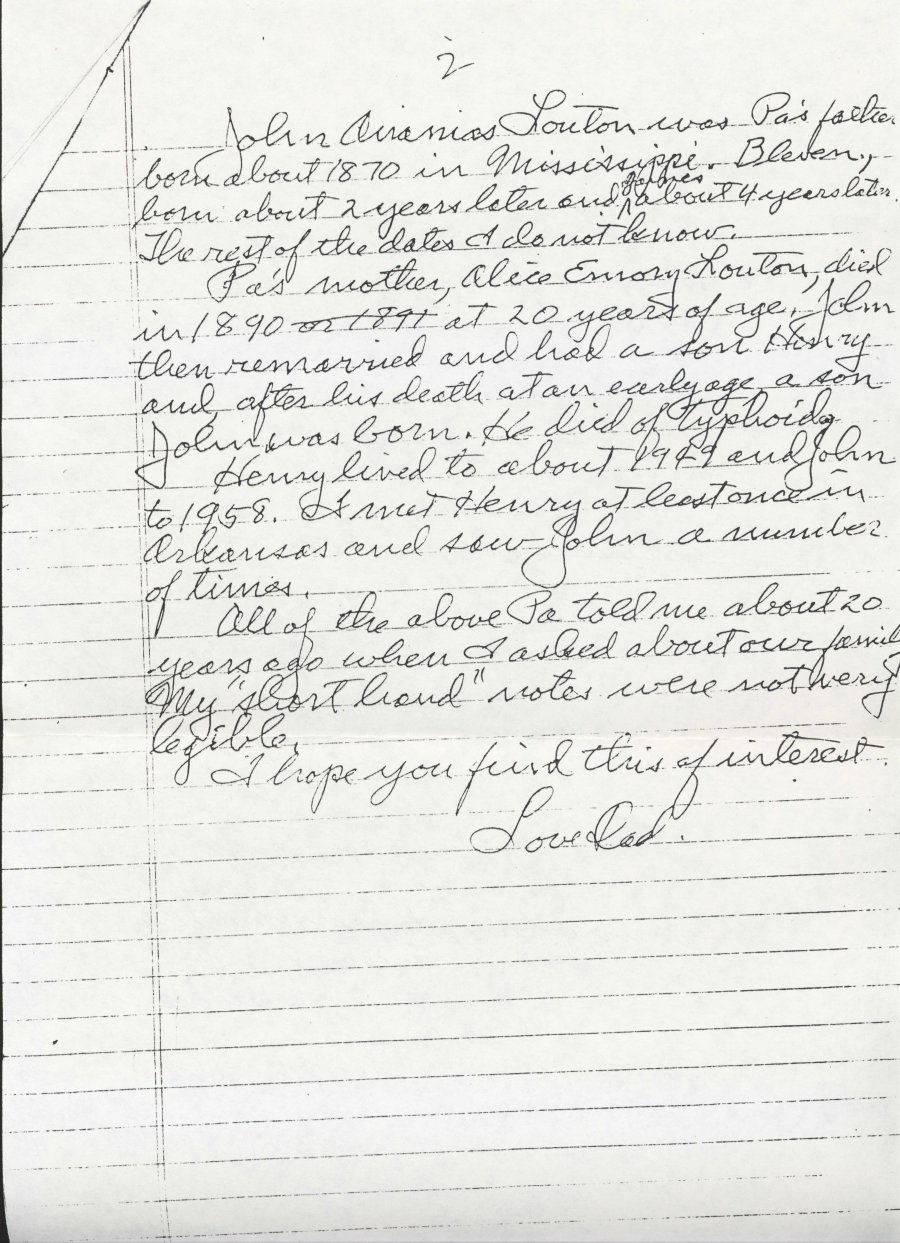 2
John Airanias Louton was Pa's father
born about 1870 in Mississippi. Bleven,
born about 2 years later and James about 4 years later.
The rest of the dates I do not know.
Pa's mother, Alice Emory Louton, died
in 1890 or 1891 at 20 years of age. John
then remarried and had a son Henry
and, after his death at an early age, a son
John was born. He died of typhoid.
Henry lived to about 1949 and John
to 1958. I met Henry at least once in
Arkansas and saw John a number
of times.
All of the above Pa told me about 20
years ago when I asked about our family
My "short hand" notes were not very
legible.
I hope you find this of interest.
Love Dad.